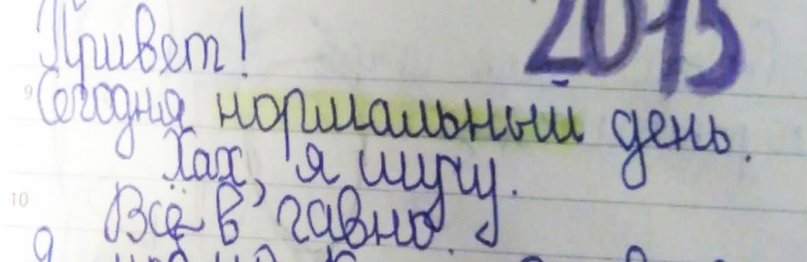 Привет!
2015
Сегодня нормальный день.
Хах, я шучу.
10
Всё в гавно.